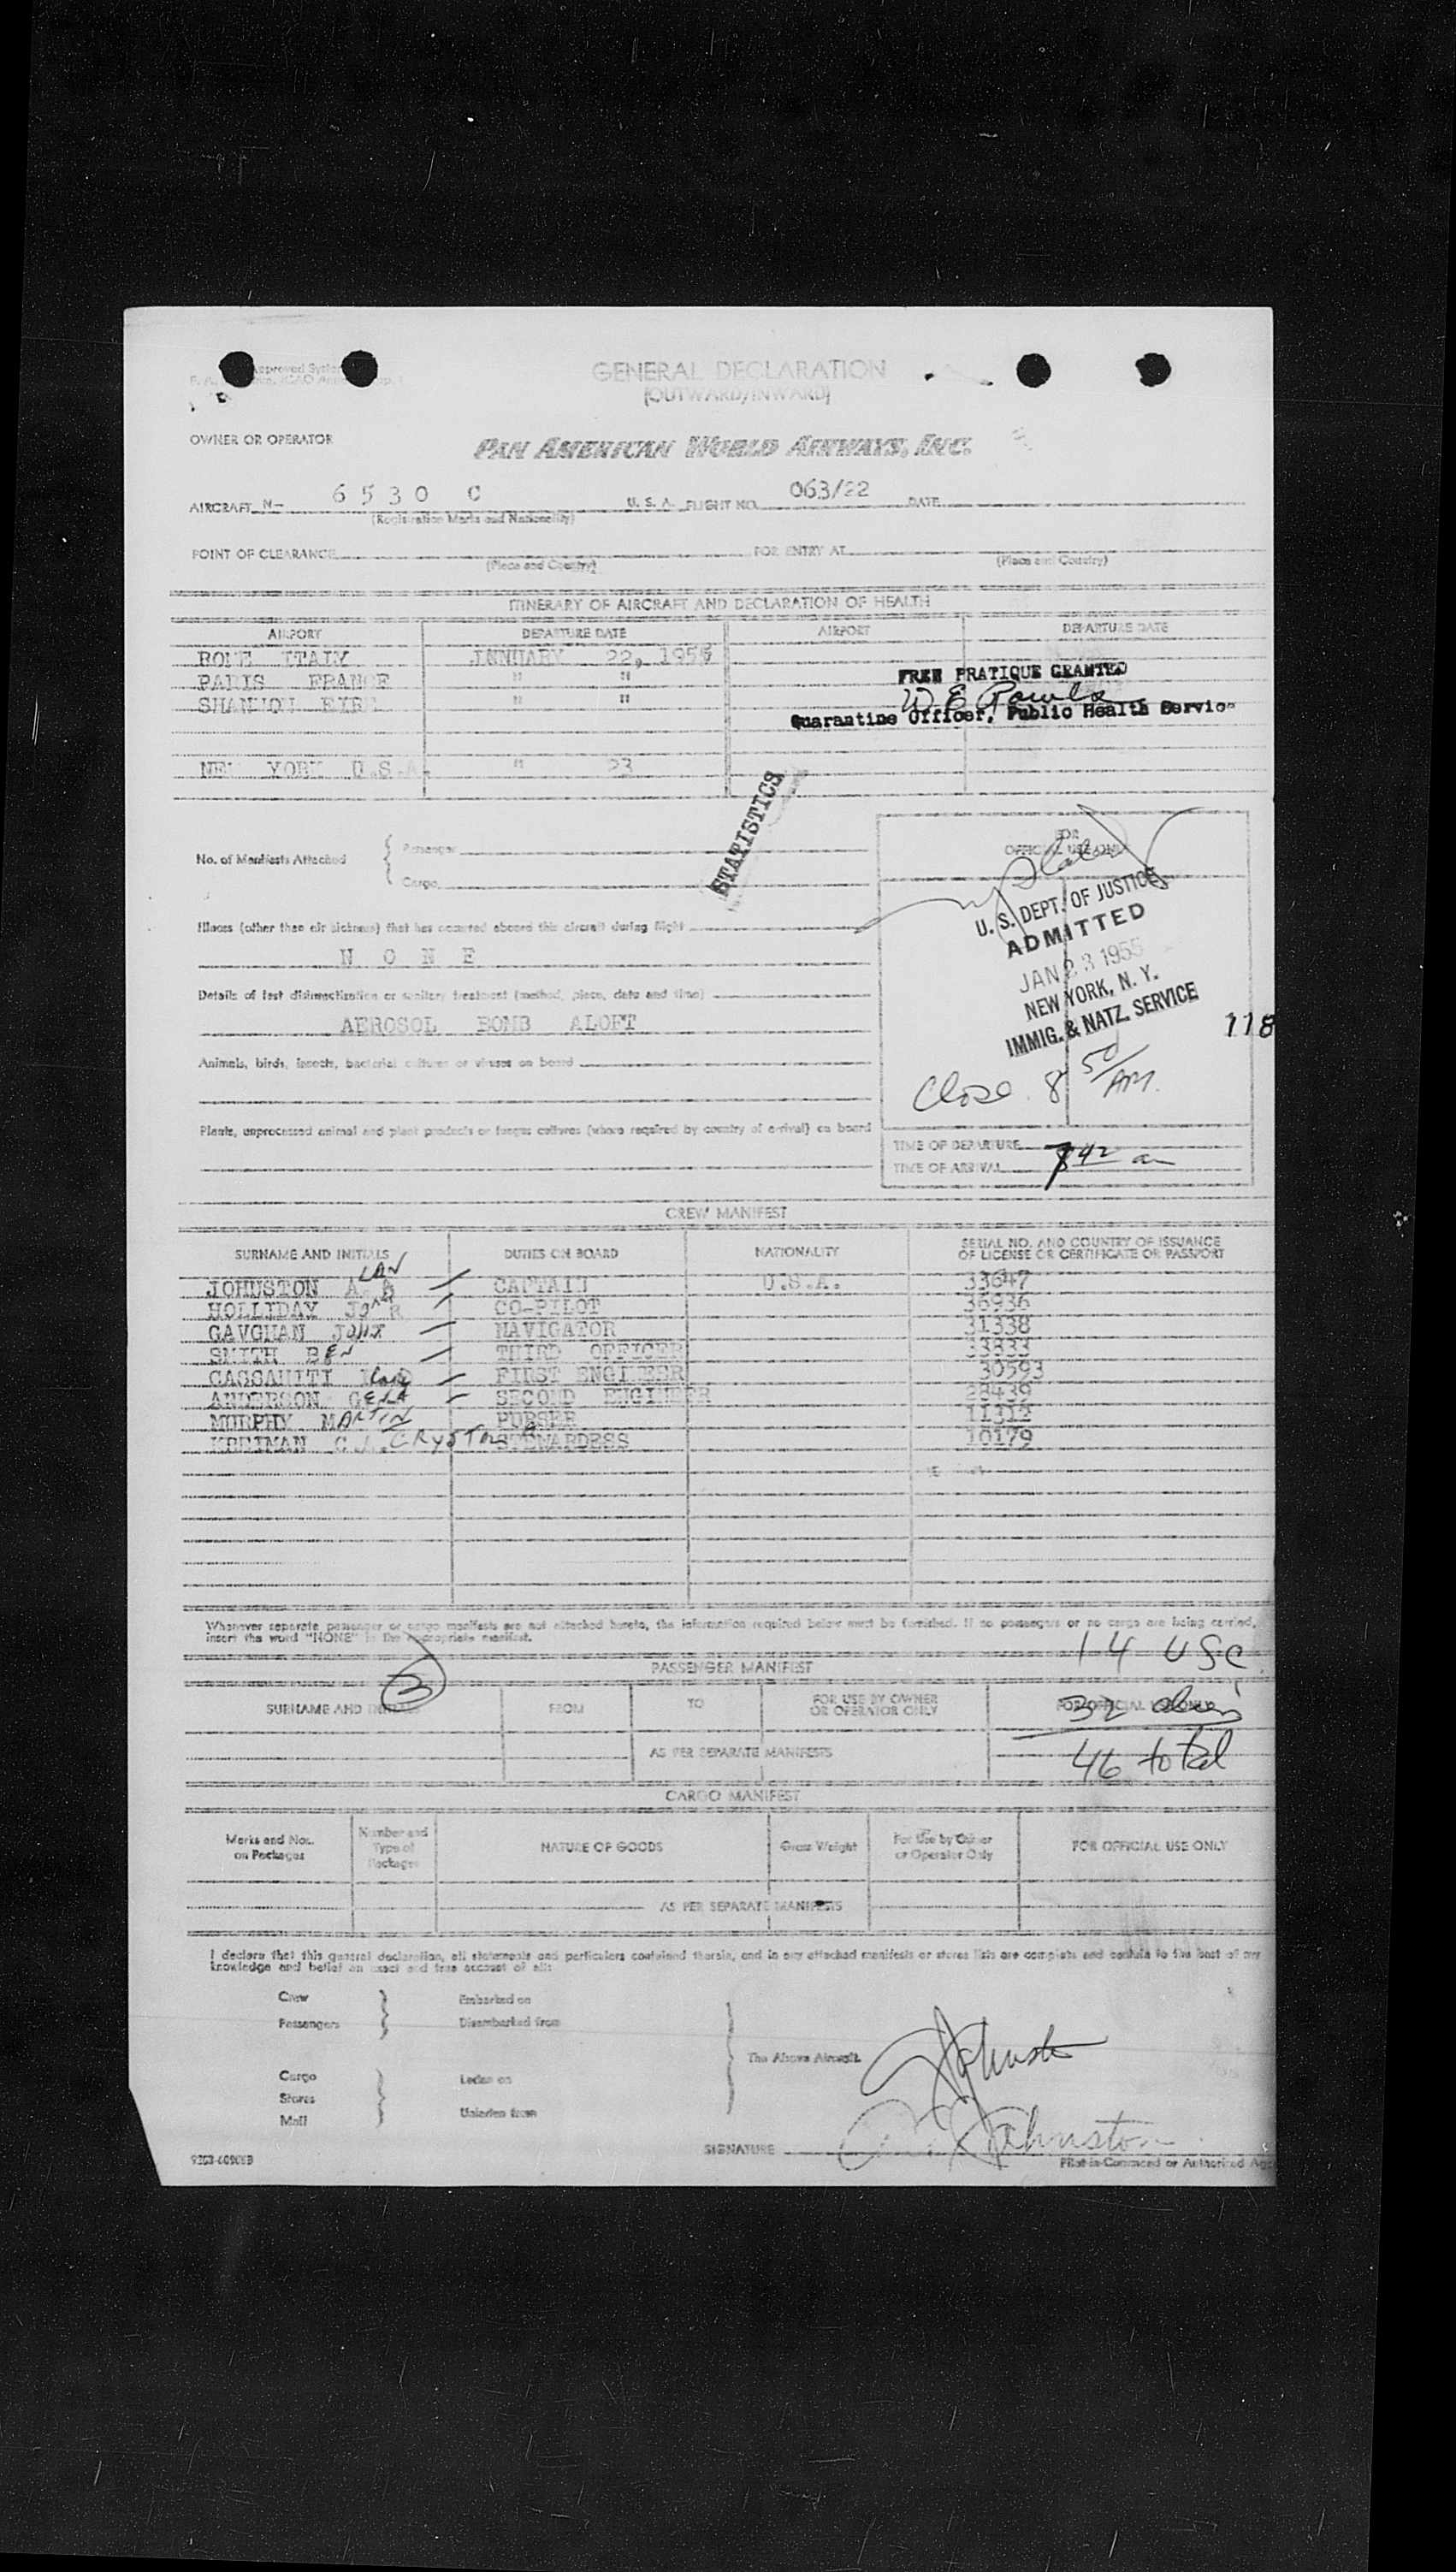 GENERAL DECLARATION
(OUTWARD/INWARD)
OWNER OR OPERATOR
PAN AMERICAN WORLD AIRWAYS, INC.
AIRCRAFT N- 6530 C U. S. A. FLIGHT NO. 063/22 DATE
(Registration Marks and Nationality)
POINT OF CLEARANCE FOR ENTRY AT
(Place and Country) (Place and Country)
ITINERARY OF AIRCRAFT AND DECLARATION OF HEALTH
AIRPORT DEPARTURE DATE AIRPORT DEPARTURE DATE
ROME ITALY JANUARY 22, 1955
PARIS FRANCE " "
SHANNON EIRE " "
FREE PRATIQUE GRANTED
W E
Quarantine Officer, Public Health Service
NEW YORK U.S.A. " 23
STATISTICS
No. of Manifests Attached { Passenger
Cargo
FOR
OFFICIAL USE ONLY
Illness (other than air sickness) that has occurred aboard this aircraft during flight
N O N E
Details of last disinsectization or sanitary treatment (method, place, date and time)
AEROSOL BOMB ALOFT
Animals, birds, insects, bacterial cultures or viruses on board
Plants, unprocessed animal and plant products or fungus cultures (where required by country of arrival) on board
U. S. DEPT. OF JUSTICE
ADMITTED
JAN 23 1955
NEW YORK, N. Y.
IMMIG. & NATZ. SERVICE
118
Close 8 50/AM.
TIME OF DEPARTURE
TIME OF ARRIVAL 742 am
CREW MANIFEST
SURNAME AND INITIALS DUTIES ON BOARD NATIONALITY SERIAL NO. AND COUNTRY OF ISSUANCE OF LICENSE OR CERTIFICATE OR PASSPORT
JOHNSTON A LAN B CAPTAIN U.S.A. 33647
HOLLIDAY JOHN R CO-PILOT 36936
GAVGHAN JOHN NAVIGATOR 31338
SMITH BEN THIRD OFFICER 33833
CASSAHITI FIRST ENGINEER 30593
ANDERSON GENE SECOND ENGINEER 28439
MURPHY MARTIN PURSER 11312
C J. CRYSTAL STEWARDESS 10179
Whenever separate passenger or cargo manifests are not attached hereto, the information required below must be furnished. If no passengers or no cargo are being carried,
insert the word "NONE" in the appropriate manifest.
14 USC
PASSENGER MANIFEST
3
SURNAME AND INITIALS FROM TO FOR USE BY OWNER OR OPERATOR ONLY FOR OFFICIAL USE ONLY
32 aliens
AS PER SEPARATE MANIFESTS
46 total
CARGO MANIFEST
Marks and Nos. on Packages Number and Type of Packages NATURE OF GOODS Gross Weight For Use by Owner or Operator Only FOR OFFICIAL USE ONLY
AS PER SEPARATE MANIFESTS
I declare that this general declaration, all statements and particulars contained therein, and in any attached manifests or stores lists are complete and contain to the best of my
knowledge and belief an exact and true account of all:
Crew Embarked on
Passengers Disembarked from
The Above Aircraft.
Cargo Laden on
Stores
Mail Unladen from
Johnston
SIGNATURE Johnston
Pilot-in-Command or Authorized Agent